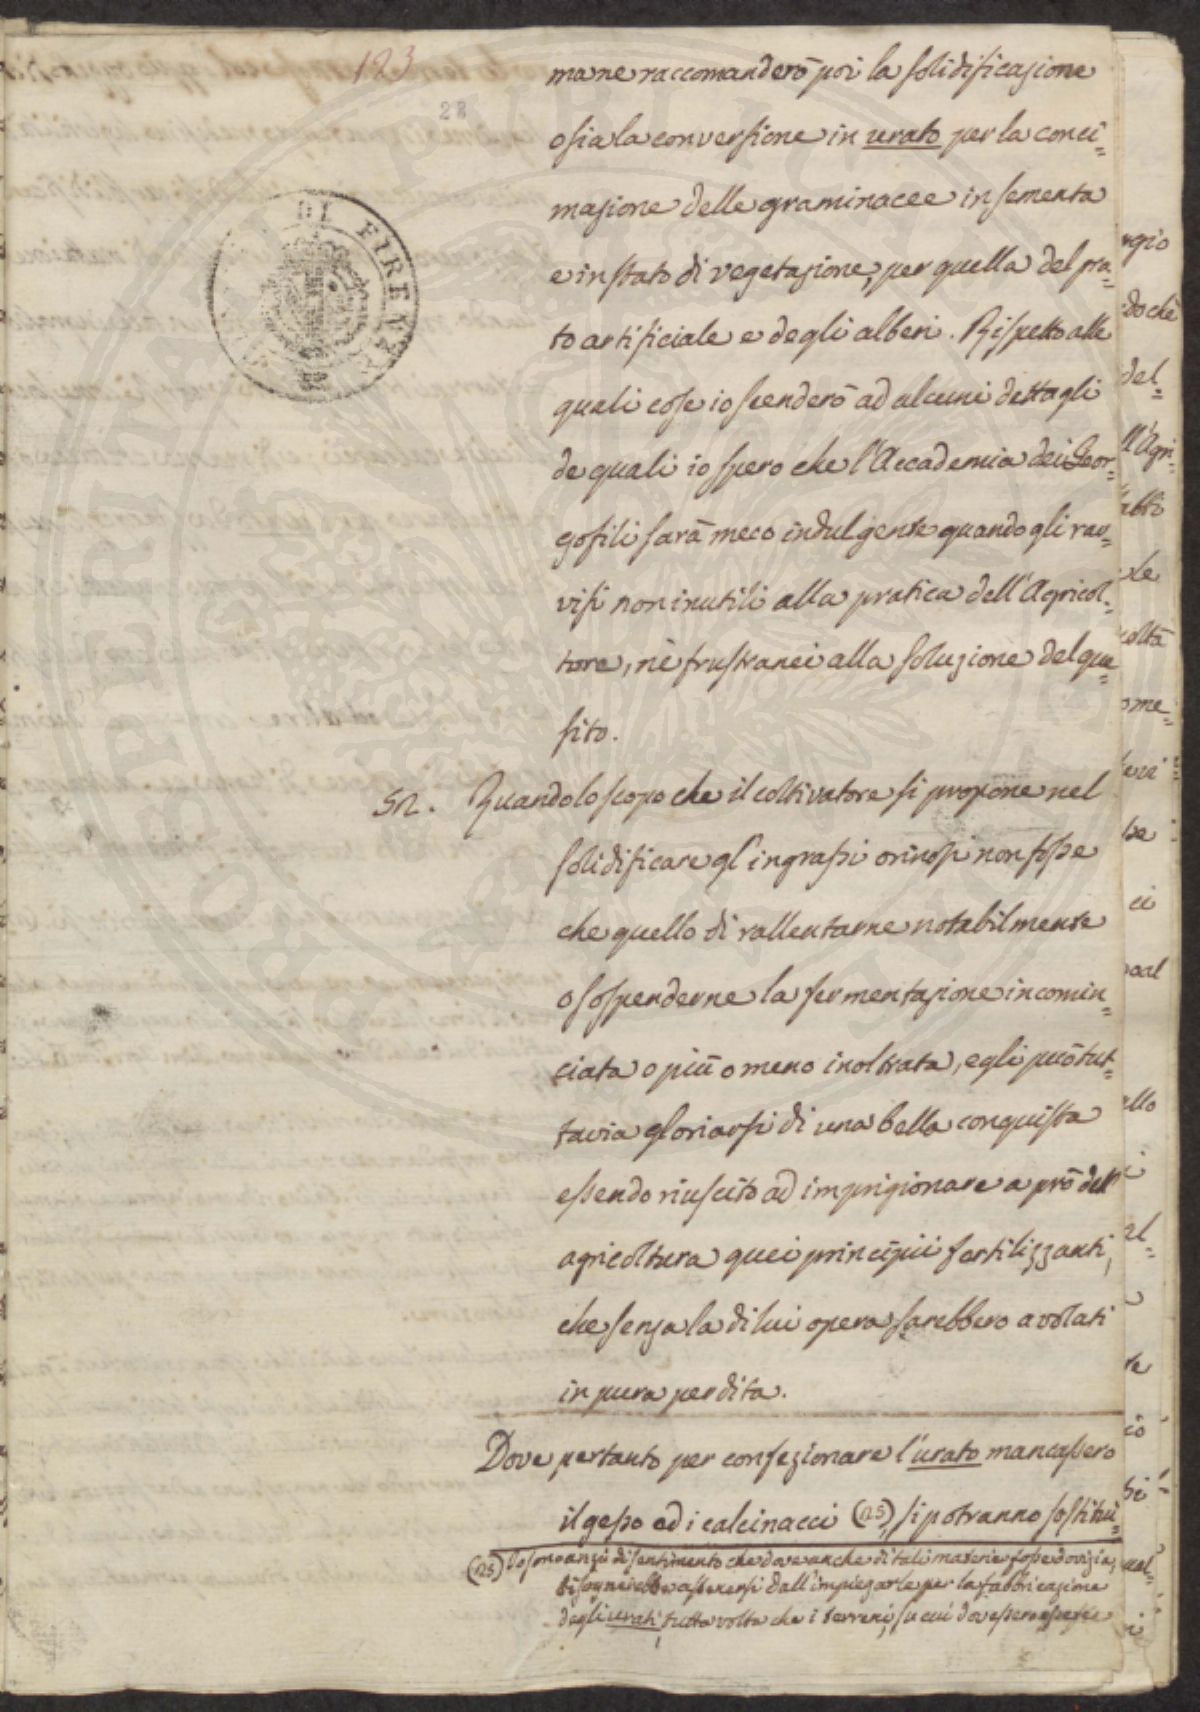 123
28
mane raccomanderò poi la solidificazione
osia la conversione in urato per la conci=
mazione delle graminacee in sementa
e in stato di vegetazione, per quella del pra=
to artificiale e degli alberi. Rispetto alle
quali cose io scenderò ad alcuni dettagli
de quali io spero che l'Accademia dei Geor=
gofili sarà meco indulgente quando gli rav=
visi non inutili alla pratica dell'Agricol=
tore, nè frustranei alla soluzione del que=
sito.
52. Quando lo scopo che il coltivatore si propone nel
solidificare gl'ingrassi orinosi non fosse
che quello di rallentarne notabilmente
o sospenderne la fermentazione incomin=
ciata o più o meno inoltrata, egli può tut=
tavia gloriarsi di una bella conquista
essendo riuscito ad imprigionare a prò dell'
agricoltura quei principii fertilizzanti,
che senza la di lui opera sarebbero avolati
in pura perdita.
Dove pertanto per confezionare l'urato mancassero
il gesso ed i calcinacci (25), si potranno sostitui=
(25) Io sono anzi di sentimento che dove anche di tali materie fosse dovizia,
bisognerebbe astenersi dall'impiegarle per la fabbricazione
degli urati, tutta volta che i terreni, su cui dovessero
DI FIRENZE